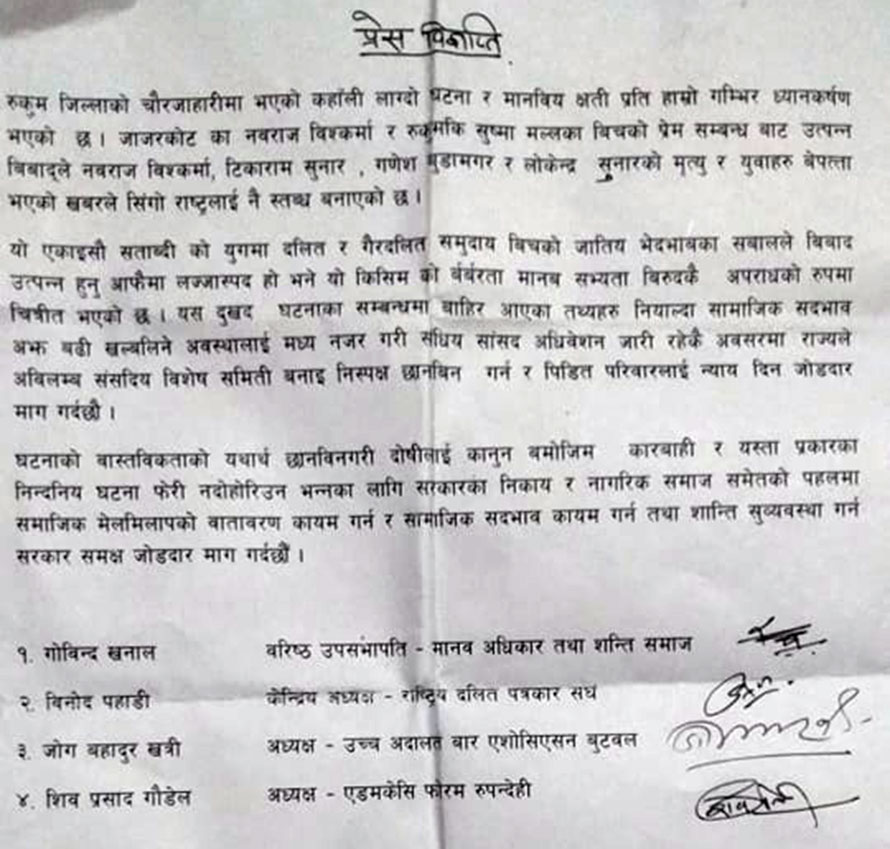 प्रेस विज्ञप्ति
रुकुम जिल्लाको चौरजाहारीमा भएको कहाँली लाग्दो घटना र मानविय क्षती प्रति हाम्रो गम्भिर ध्यानकर्षण
भएको छ । जाजरकोट का नवराज विश्कर्मा र रुकुमकि सुष्मा मल्लका बिचको प्रेम सम्बन्ध बाट उत्पन्न
बिबाद्ले नवराज विश्कर्मा, टिकाराम सुनार , गणेश बुडामगर र लोकेन्द्र सुनारको मृत्यु र युवाहरु बेपत्ता
भएको खबरले सिंगो राष्ट्रलाई नै स्तब्ध बनाएको छ ।
यो एकाइसौ सताब्दी को युगमा दलित र गैरदलित समुदाय बिचको जातिय भेदभाबका सबालले बिबाद
उत्पन्न हुनु आफैमा लज्जास्पद हो भने यो किसिम को बर्बरता मानब सभ्यता बिरुदकै अपराधको रुपमा
चित्रीत भएको छ । यस दुखद घटनाका सम्बन्धमा बाहिर आएका तथ्यहरु नियाल्दा सामाजिक सदभाव
अझ बढी खल्बलिने अवस्थालाई मध्य नजर गरी संधिय सांसद अधिवेशन जारी रहेकै अवसरमा राज्यले
अबिलम्ब संसदिय विशेष समिती बनाइ निस्पक्ष छानबिन गर्न र पिडित परिवारलाई न्याय दिन जोडदार
माग गर्दछौ ।
घटनाको बास्तविकताको यथार्थ छानविनगरी दोषीलाई कानुन बमोजिम कारबाही र यस्ता प्रकारका
निन्दनिय घटना फेरी नदोहोरिउन भन्नका लागि सरकारका निकाय र नागरिक समाज समेतको पहलमा
समाजिक मेलमिलापको वातावरण कायम गर्न र सामाजिक सदभाव कायम गर्न तथा शान्ति सुव्यवस्था गर्न
सरकार समक्ष जोडदार माग गर्दछौं ।
१. गोविन्द खनाल वरिष्ठ उपसभापति - मानव अधिकार तथा शन्ति समाज
२. बिनोद पहाडी केन्द्रिय अध्यक्ष - राष्ट्रिय दलित पत्रकार संध
३. जोग बहादुर खत्री अध्यक्ष - उच्च अदालत बार एशोसिएसन बुटवल
४. शिव प्रसाद गौडेल अध्यक्ष - एडमकेसि फोरम रुपन्देही